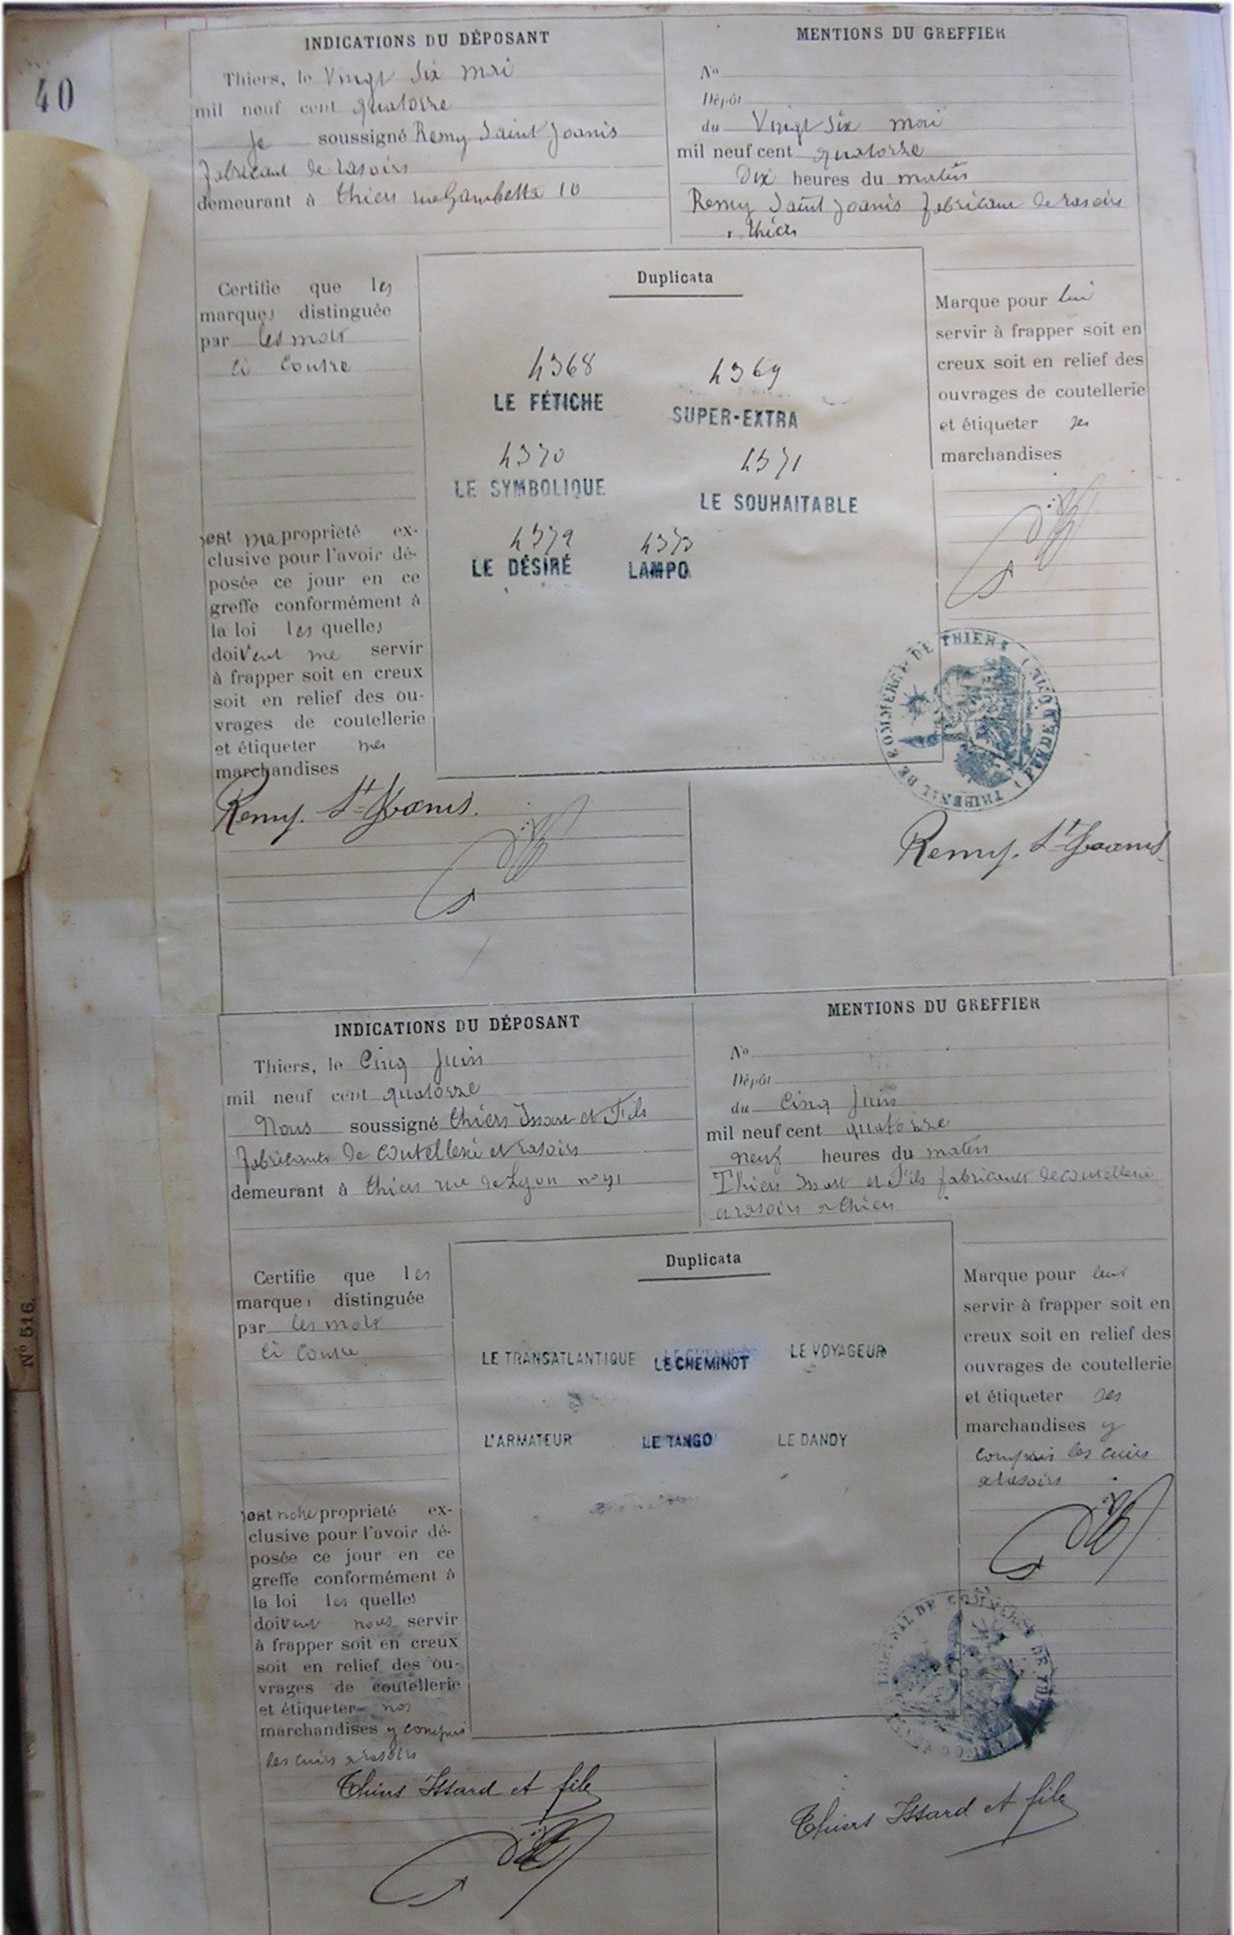 40
INDICATIONS DU DÉPOSANT
Thiers, le Vingt Six mai
mil neuf cent quatorze
Je soussigné Remy Saint Joanis
fabricant de rasoirs
demeurant à Thiers rue Gambetta 10
MENTIONS DU GREFFIER
No
Dépôt
du Vingt Six mai
mil neuf cent quatorze
Dix heures du matin
Remy Saint Joanis fabricant de rasoirs
à Thiers
Certifie que les
marques distinguée
par les mots
ci contre
Duplicata
4368
4369
LE FÉTICHE
SUPER-EXTRA
4370
4371
LE SYMBOLIQUE
LE SOUHAITABLE
4372
4373
LE DÉSIRÉ
LAMPO
Marque pour lui
servir à frapper soit en
creux soit en relief des
ouvrages de coutellerie
et étiqueter ses
marchandises
sont ma propriété ex-
clusive pour l'avoir dé-
posée ce jour en ce
greffe conformément à
la loi les quelles
doivent me servir
à frapper soit en creux
soit en relief des ou-
vrages de coutellerie
et étiqueter mes
marchandises
Remy. St Joanis.
TRIBUNAL DE COMMERCE DE THIERS (PUY DE DOME)
Remy. St Joanis.
INDICATIONS DU DÉPOSANT
Thiers, le Cinq Juin
mil neuf cent quatorze
Nous soussigné Thiers Issard et Fils
fabricants de coutellerie et rasoirs
demeurant à Thiers rue de Lyon no 91
MENTIONS DU GREFFIER
No
Dépôt
du Cinq Juin
mil neuf cent quatorze
neuf heures du matin
Thiers Issard et Fils fabricants de coutellerie
et rasoirs à Thiers
Certifie que les
marques distinguée
par les mots
ci contre
Duplicata
LE TRANSATLANTIQUE
LE CHEMINOT
LE VOYAGEUR
L'ARMATEUR
LE TANGO
LE DANDY
Marque pour leur
servir à frapper soit en
creux soit en relief des
ouvrages de coutellerie
et étiqueter ses
marchandises y
compris les cuirs
à rasoirs
sont notre propriété ex-
clusive pour l'avoir dé-
posée ce jour en ce
greffe conformément à
la loi les quelles
doivent nous servir
à frapper soit en creux
soit en relief des ou-
vrages de coutellerie
et étiqueter nos
marchandises y compris
les cuirs à rasoirs
Thiers Issard et fils
TRIBUNAL DE COMMERCE DE THIERS
Thiers Issard et fils
No 516.